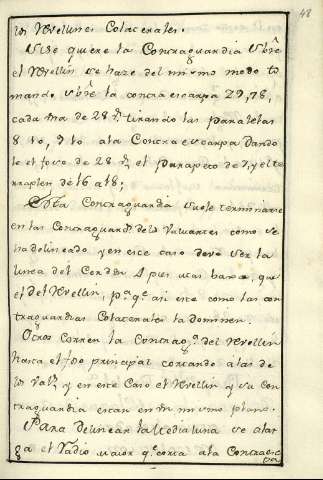 48
los Revellines Colaterales.
Si se quiere la Contraguardia sobre
el Revellin se haze del mismo modo to
mando sobre la contraescarpa 29, 78,
cada una de 28 tirando las paralelas
8 10, 9 10 ala Contraescarpa Dando
le el foso de 28 el parapeto de 3, y el te
rraplen de 16 a 18;
Esta Contraguardia suele terminarse
en las Contraguard.s delos Valuartes como se
ha delineado y en este caso deve ser la
linea del Cordon 4 pies mas baxa, que
el del Revellin, p.a q.e asi este como las con
traguardias Colaterales la dominen.
Otros corren la Contrag.a del Revellin
hasta el foso principal cortando alas de
los Val.s y en este Caso el Revellin y su Con
traguardia estan en un mismo plano.
Para delinear la Media luna se alar
ga el Radio maior q.e corta ala Contraes
pa